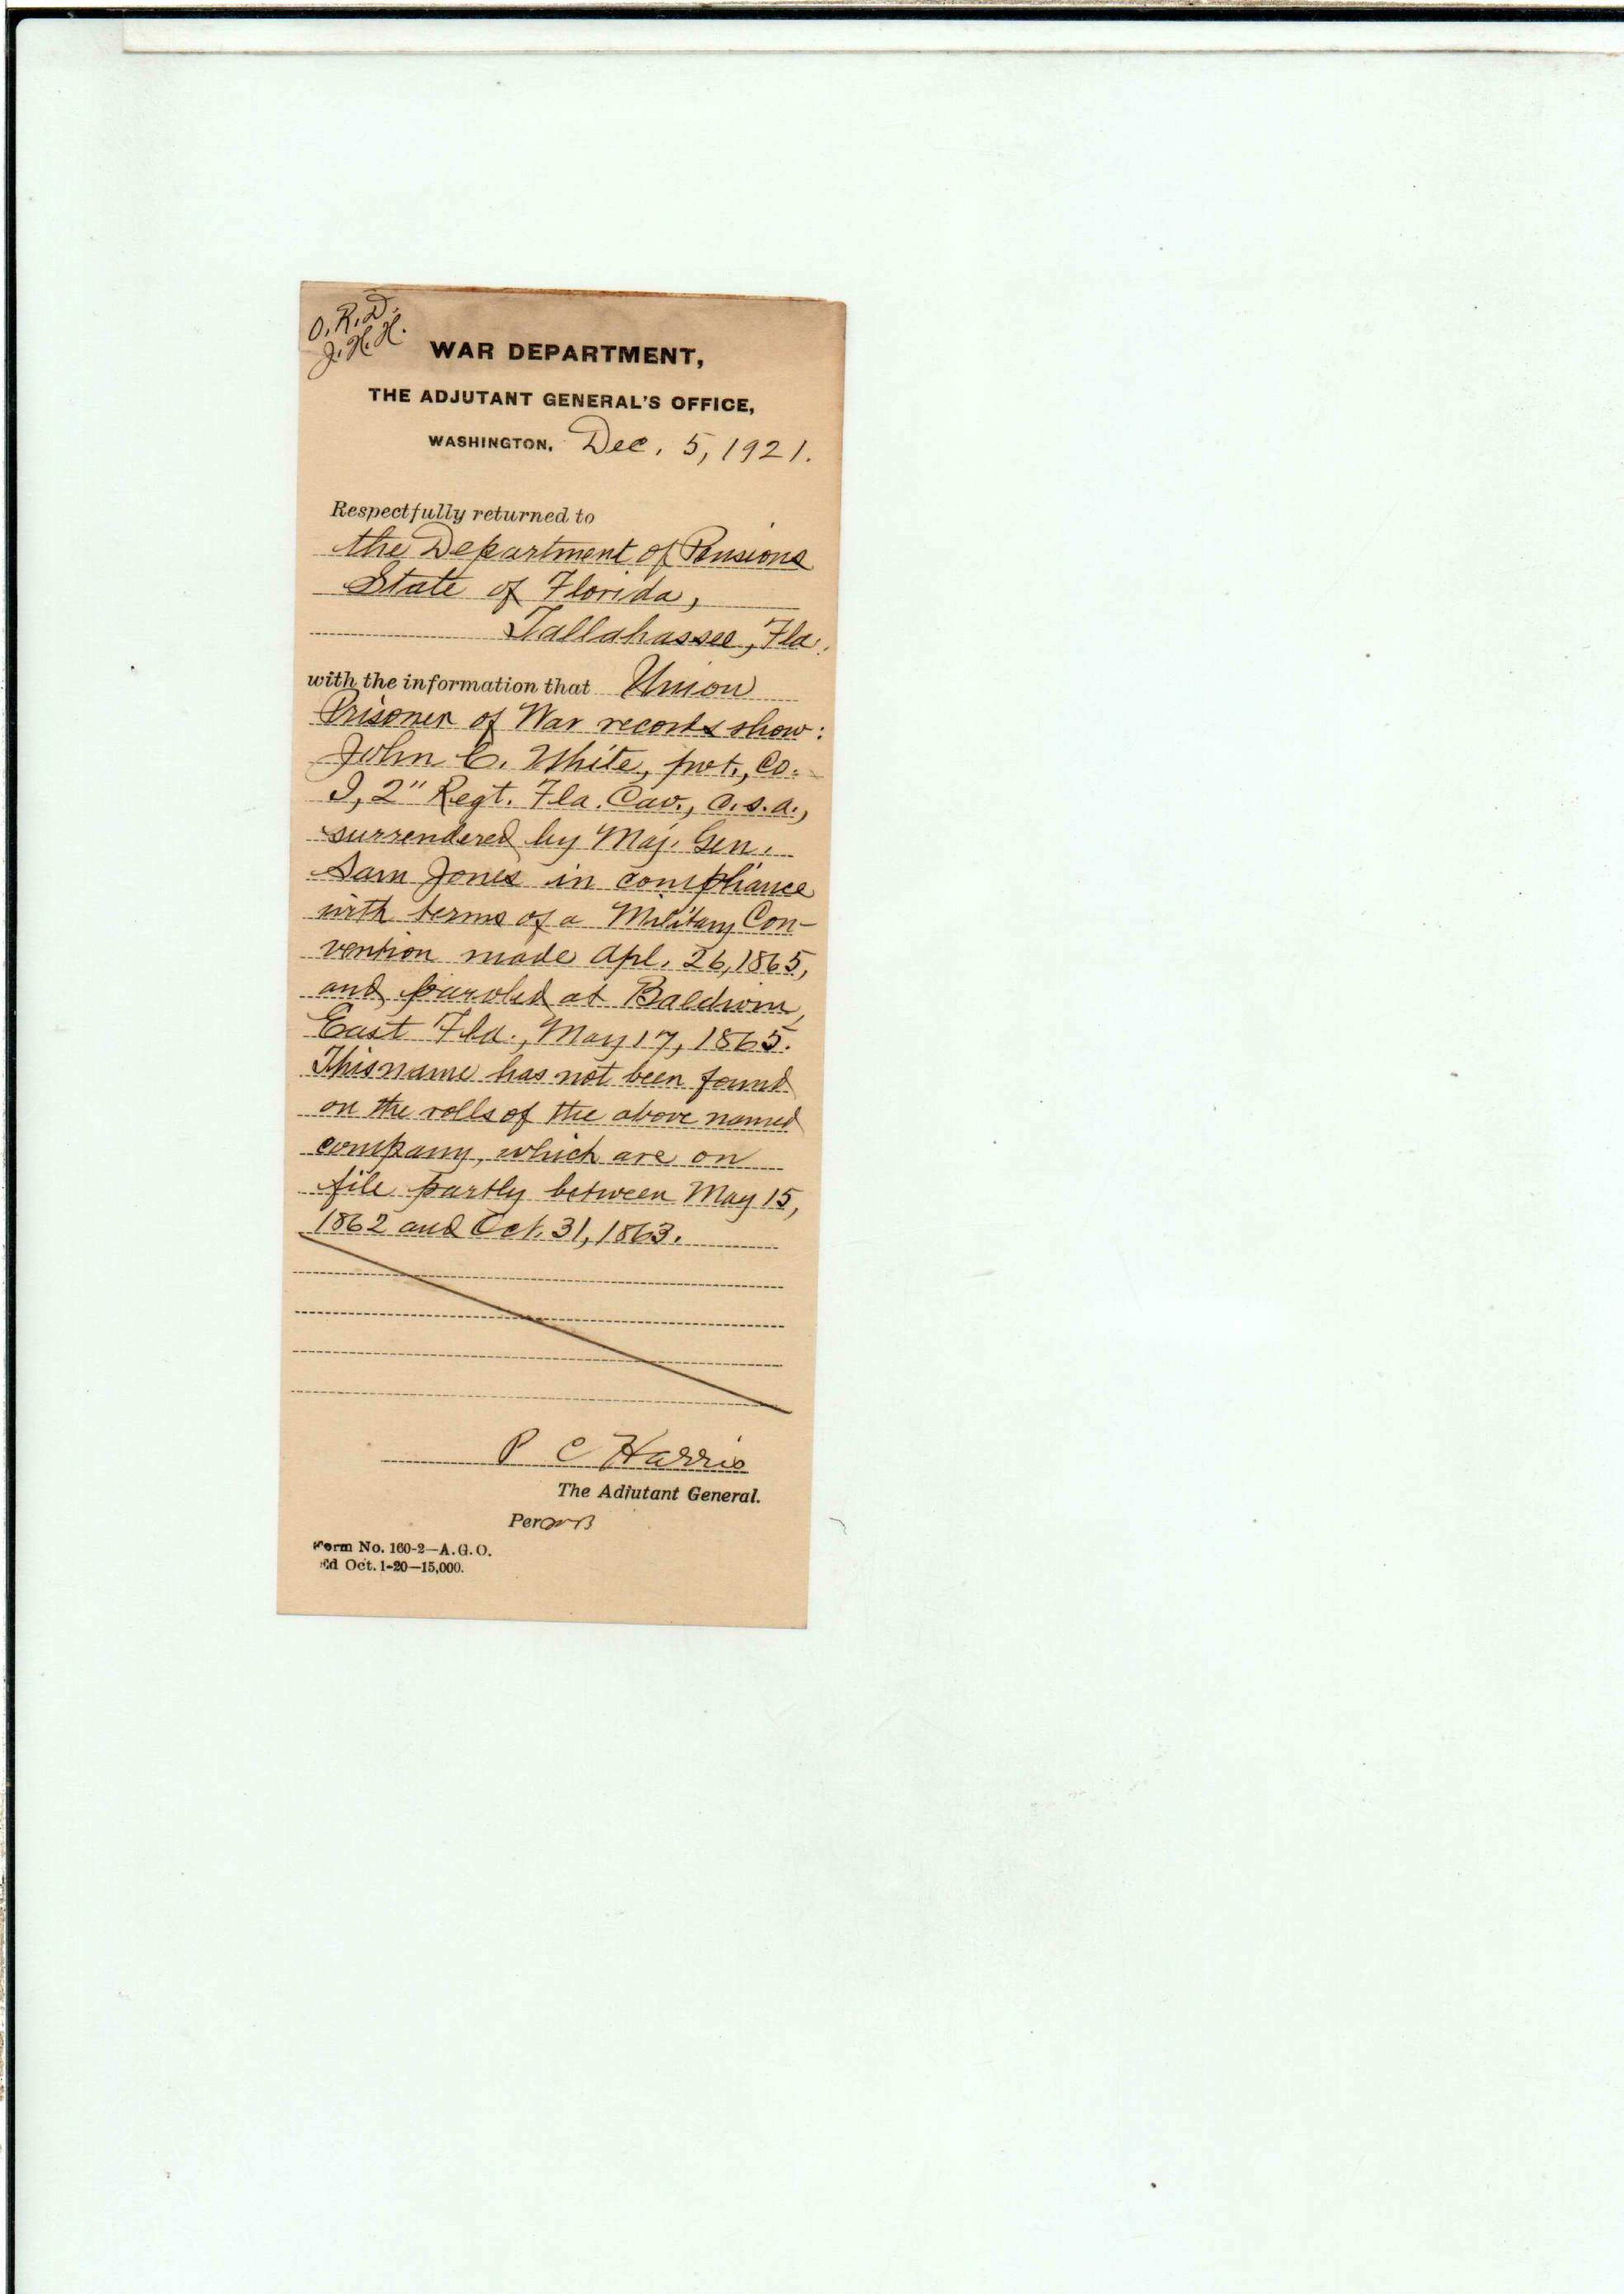 O.R.D.
J.H.H.
WAR DEPARTMENT,
THE ADJUTANT GENERAL'S OFFICE,
WASHINGTON, Dec. 5, 1921.
Respectfully returned to
the Department of Pensions
State of Florida,
Tallahassee, Fla.
with the information that Union
Prisoner of War records show:
John C. White, pvt., Co.
I, 2" Regt. Fla. Cav., C.S.A.,
surrendered by Maj. Gen.
Sam Jones in compliance
with terms of a Military Con-
vention made Apl. 26, 1865,
and paroled at Baldwin,
East Fla., May 17, 1865.
This name has not been found
on the rolls of the above named
company, which are on
file partly between May 15,
1862 and Oct. 31, 1863.
P C Harris
The Adjutant General.
Per
Form No. 160-2—A.G.O.
Ed Oct. 1-20—15,000.